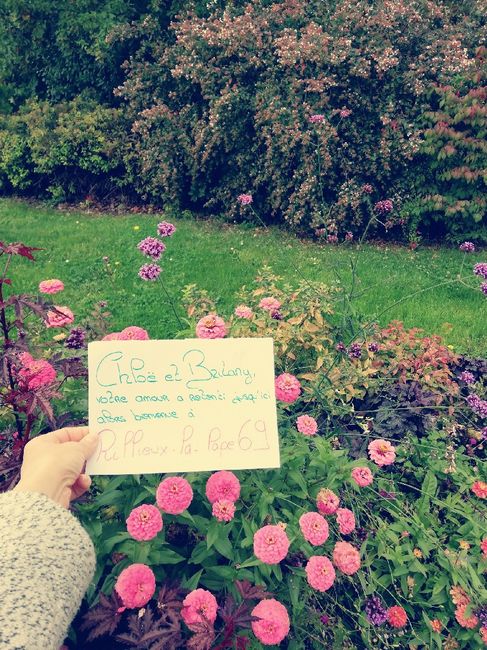 Chloë et Britany,
votre amour a retenti jusqu'ici
alors bienvenue à
Rillieux-La-Pape 69